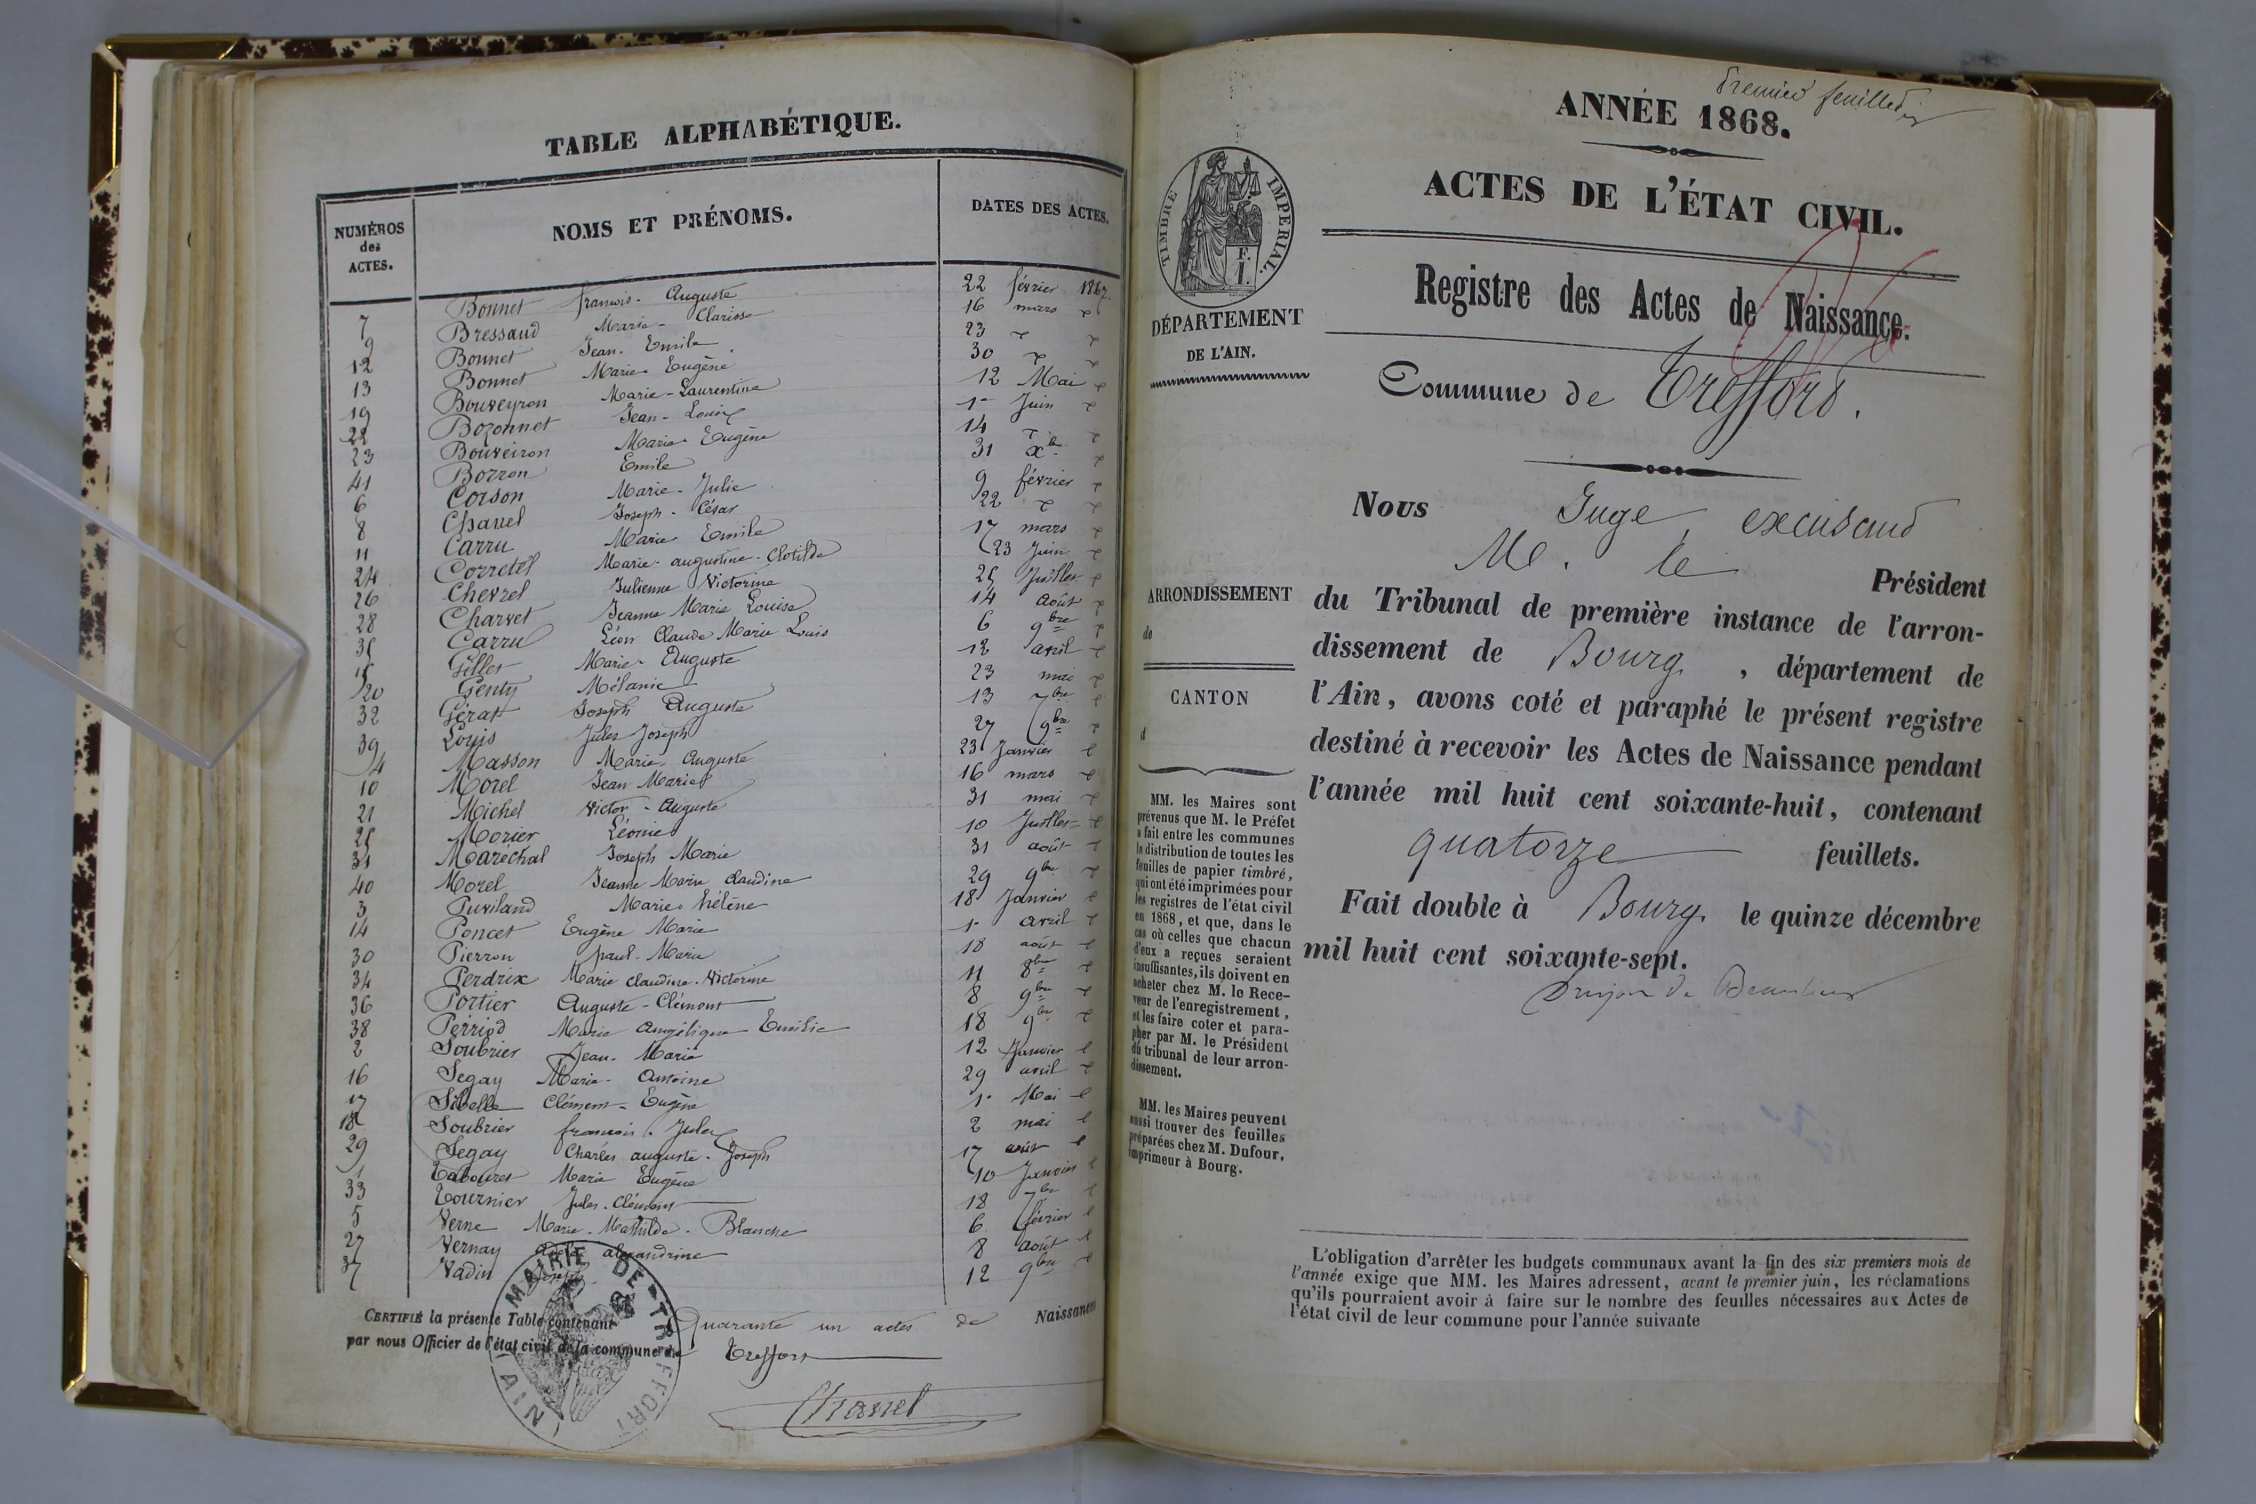 TABLE ALPHABÉTIQUE.
NUMÉROS des ACTES. NOMS ET PRÉNOMS. DATES DES ACTES.
7 Bonnet françois-Auguste 22 février 1867.
9 Bressaud Marie-Clarisse 16 mars
12 Bonnet Jean-Emile 23
13 Bonnet Marie Eugène 30
19 Bouveyron Marie-Laurentine 12 Mai
22 Bozonnet Jean-Louis 1er Juin
23 Bouveiron Marie Eugène 14
41 Borron Emile 31 Xbre
6 Corson Marie-Julie 9 février
8 Chanel Joseph-César 22
11 Carru Marie Emile 17 mars
24 Corretel Marie-augustine-Clotilde 23 Juin
26 Chevrel Julienne Victorine 25 Juillet
28 Charvet Jeanne Marie Louise 14 août
35 Carru Léon Claude Marie Louis 6 9bre
15 Gillet Marie-Auguste 12 avril
20 Genty Mélanie 23 mai
32 Gérat Joseph Auguste 13 7bre
39 Louis Jules Joseph 27 9bre
4 Masson Marie-Auguste 23 Janvier
10 Morel Jean Marie 16 mars
21 Michel Victor-Auguste 31 mai
25 Morier Léonie 10 Juillet
31 Maréchal Joseph Marie 31 août
40 Morel Jeanne Marie Claudine 29 9bre
3 Puviland Marie hélène 18 Janvier
14 Poncet Eugène Marie 1er avril
30 Pierron paul-Marie 18 août
34 Perdrix Marie claudine-Victorine 11 8bre
36 Portier Auguste-Clément 8 9bre
38 Perriod Marie Angélique Emilie 18 9bre
2 Soubrier Jean-Marie 12 Janvier
16 Segay Marie-Antoine 29 avril
17 Sibelle Clément-Eugène 1er Mai
18 Soubrier françois-Jules 2 mai
29 Segay Charles auguste-Joseph 17 août
1 Tabouret Marie Eugène 10 Janvier
33 Tournier Jules-Clément 18 7bre
5 Verne Marie-Mathilde-Blanche 6 février
27 Vernay Adèle alexandrine 8 août
37 Vadin Joseph 12 9bre
CERTIFIÉ la présente Table contenant Quarante un actes de Naissance
par nous Officier de l'état civil de la commune de Treffort
MAIRIE DE TREFFORT
AIN
Chanel
Premier feuillet
ANNÉE 1868.
ACTES DE L'ÉTAT CIVIL.
TIMBRE IMPERIAL.
Registre des Actes de Naissance.
DÉPARTEMENT
DE L'AIN.
Commune de Treffort.
Nous Juge, excusant
M. le Président
du Tribunal de première instance de l'arron-
dissement de Bourg, département de
l'Ain, avons coté et paraphé le présent registre
destiné à recevoir les Actes de Naissance pendant
l'année mil huit cent soixante-huit, contenant
quatorze feuillets.
Fait double à Bourg le quinze décembre
mil huit cent soixante-sept.
ARRONDISSEMENT
de
CANTON
d
MM. les Maires sont
prévenus que M. le Préfet
a fait entre les communes
la distribution de toutes les
feuilles de papier timbré,
qui ont été imprimées pour
les registres de l'état civil
en 1868, et que, dans le
cas où celles que chacun
d'eux a reçues seraient
insuffisantes, ils doivent en
acheter chez M. le Rece-
veur de l'enregistrement,
et les faire coter et para-
pher par M. le Président
du tribunal de leur arron-
dissement.
MM. les Maires peuvent
aussi trouver des feuilles
préparées chez M. Dufour,
imprimeur à Bourg.
L'obligation d'arrêter les budgets communaux avant la fin des six premiers mois de
l'année exige que MM. les Maires adressent, avant le premier juin, les réclamations
qu'ils pourraient avoir à faire sur le nombre des feuilles nécessaires aux Actes de
l'état civil de leur commune pour l'année suivante